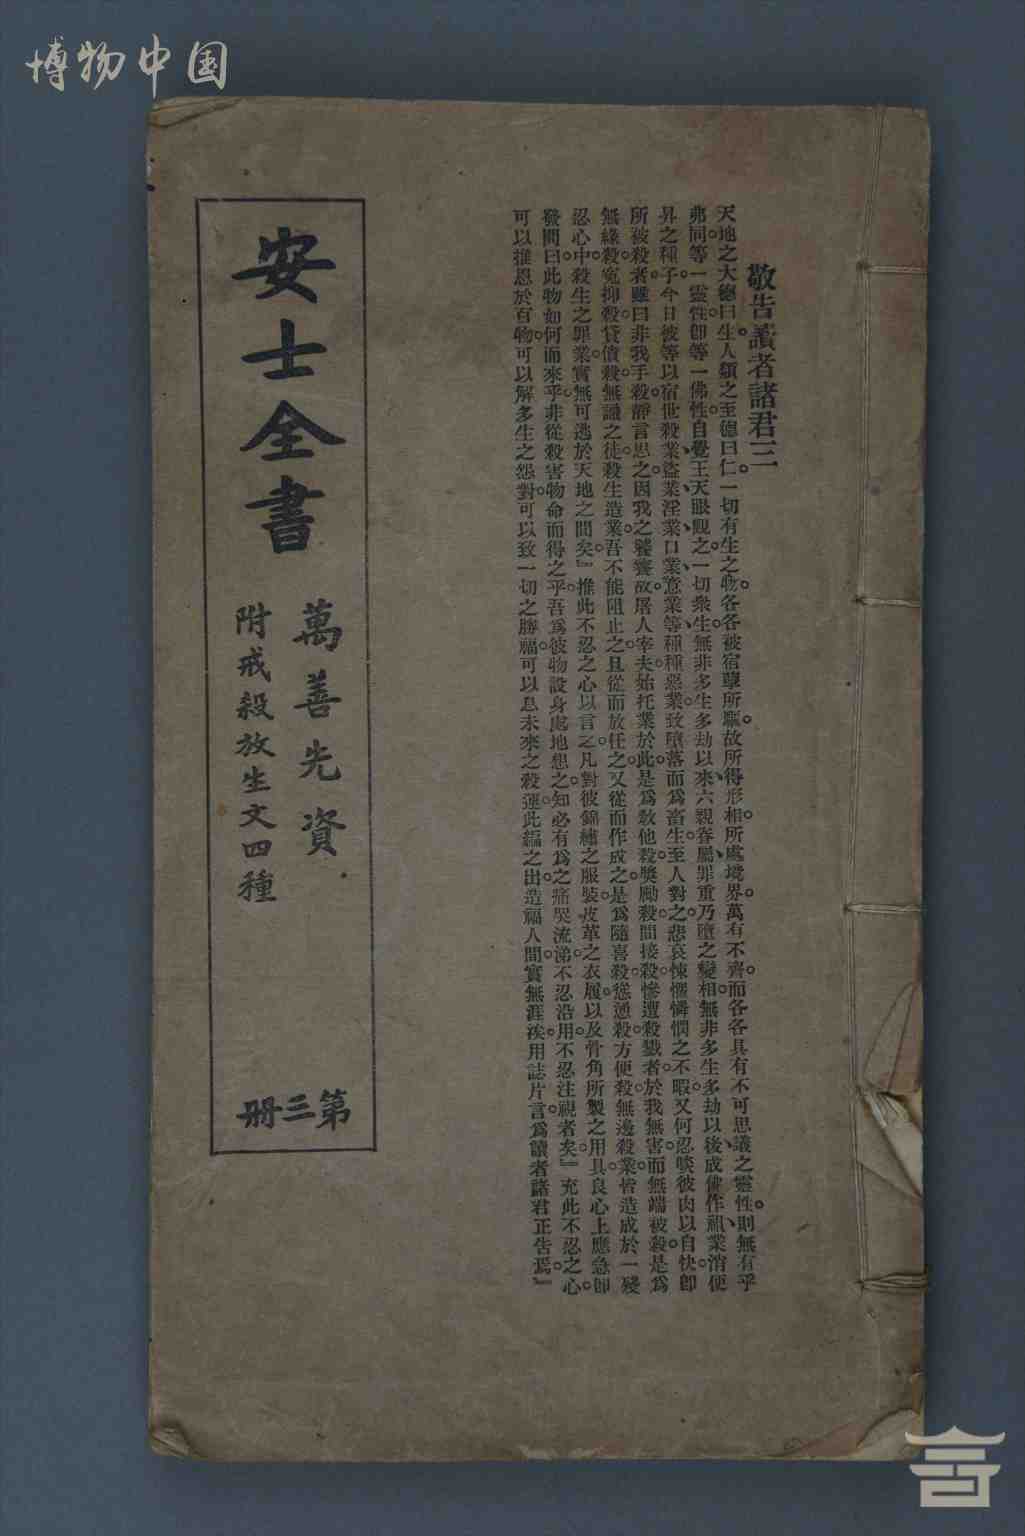 博物中国
敬告讀者諸君三
天地之大德曰生人類之至德曰仁一切有生之物各各被宿孽所驅故所得形相所處境界萬有不齊而各各具有不可思議之靈性則無有乎
弗同等一靈性卽等一佛性自覺王天眼觀之一切衆生無非多生多劫以來六親眷屬罪重乃墮之變相無非多生多劫以後成佛作祖業消便
昇之種子今日彼等以宿世殺業盜業淫業口業意業等種種惡業致墮落而爲畜生至人對之悲哀悚懼憐憫之不暇又何忍啖彼肉以自快卽
所被殺者雖曰非我手殺靜言思之因我之饕餮故屠人宰夫始托業於此是爲敎他殺獎勵殺間接殺慘遭殺戮者於我無害而無端被殺是爲
無緣殺寃抑殺貸債殺無識之徒殺生造業吾不能阻止之且從而放任之又從而作成之是爲隨喜殺慫慂殺方便殺無邊殺業皆造成於一殘
忍心中殺生之罪業實無可逃於天地之間矣』推此不忍之心以言之凡對彼錦繡之服裝皮革之衣履以及骨角所製之用具良心上應急卽
發問曰此物如何而來乎非從殺害物命而得之乎吾爲彼物設身處地想之知必有爲之痛哭流涕不忍沿用不忍注視者矣』充此不忍之心
可以推恩於百物可以解多生之怨對可以致一切之勝福可以息未來之殺運此編之出造福人間實無涯涘用誌片言爲讀者諸君正告焉』
安士全書
萬善先資
附戒殺放生文四種
第三册